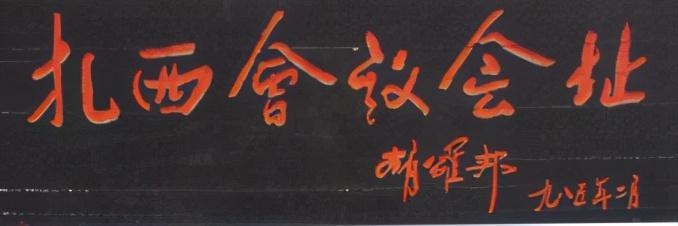 扎西會议会址
胡耀邦
九八五年二月